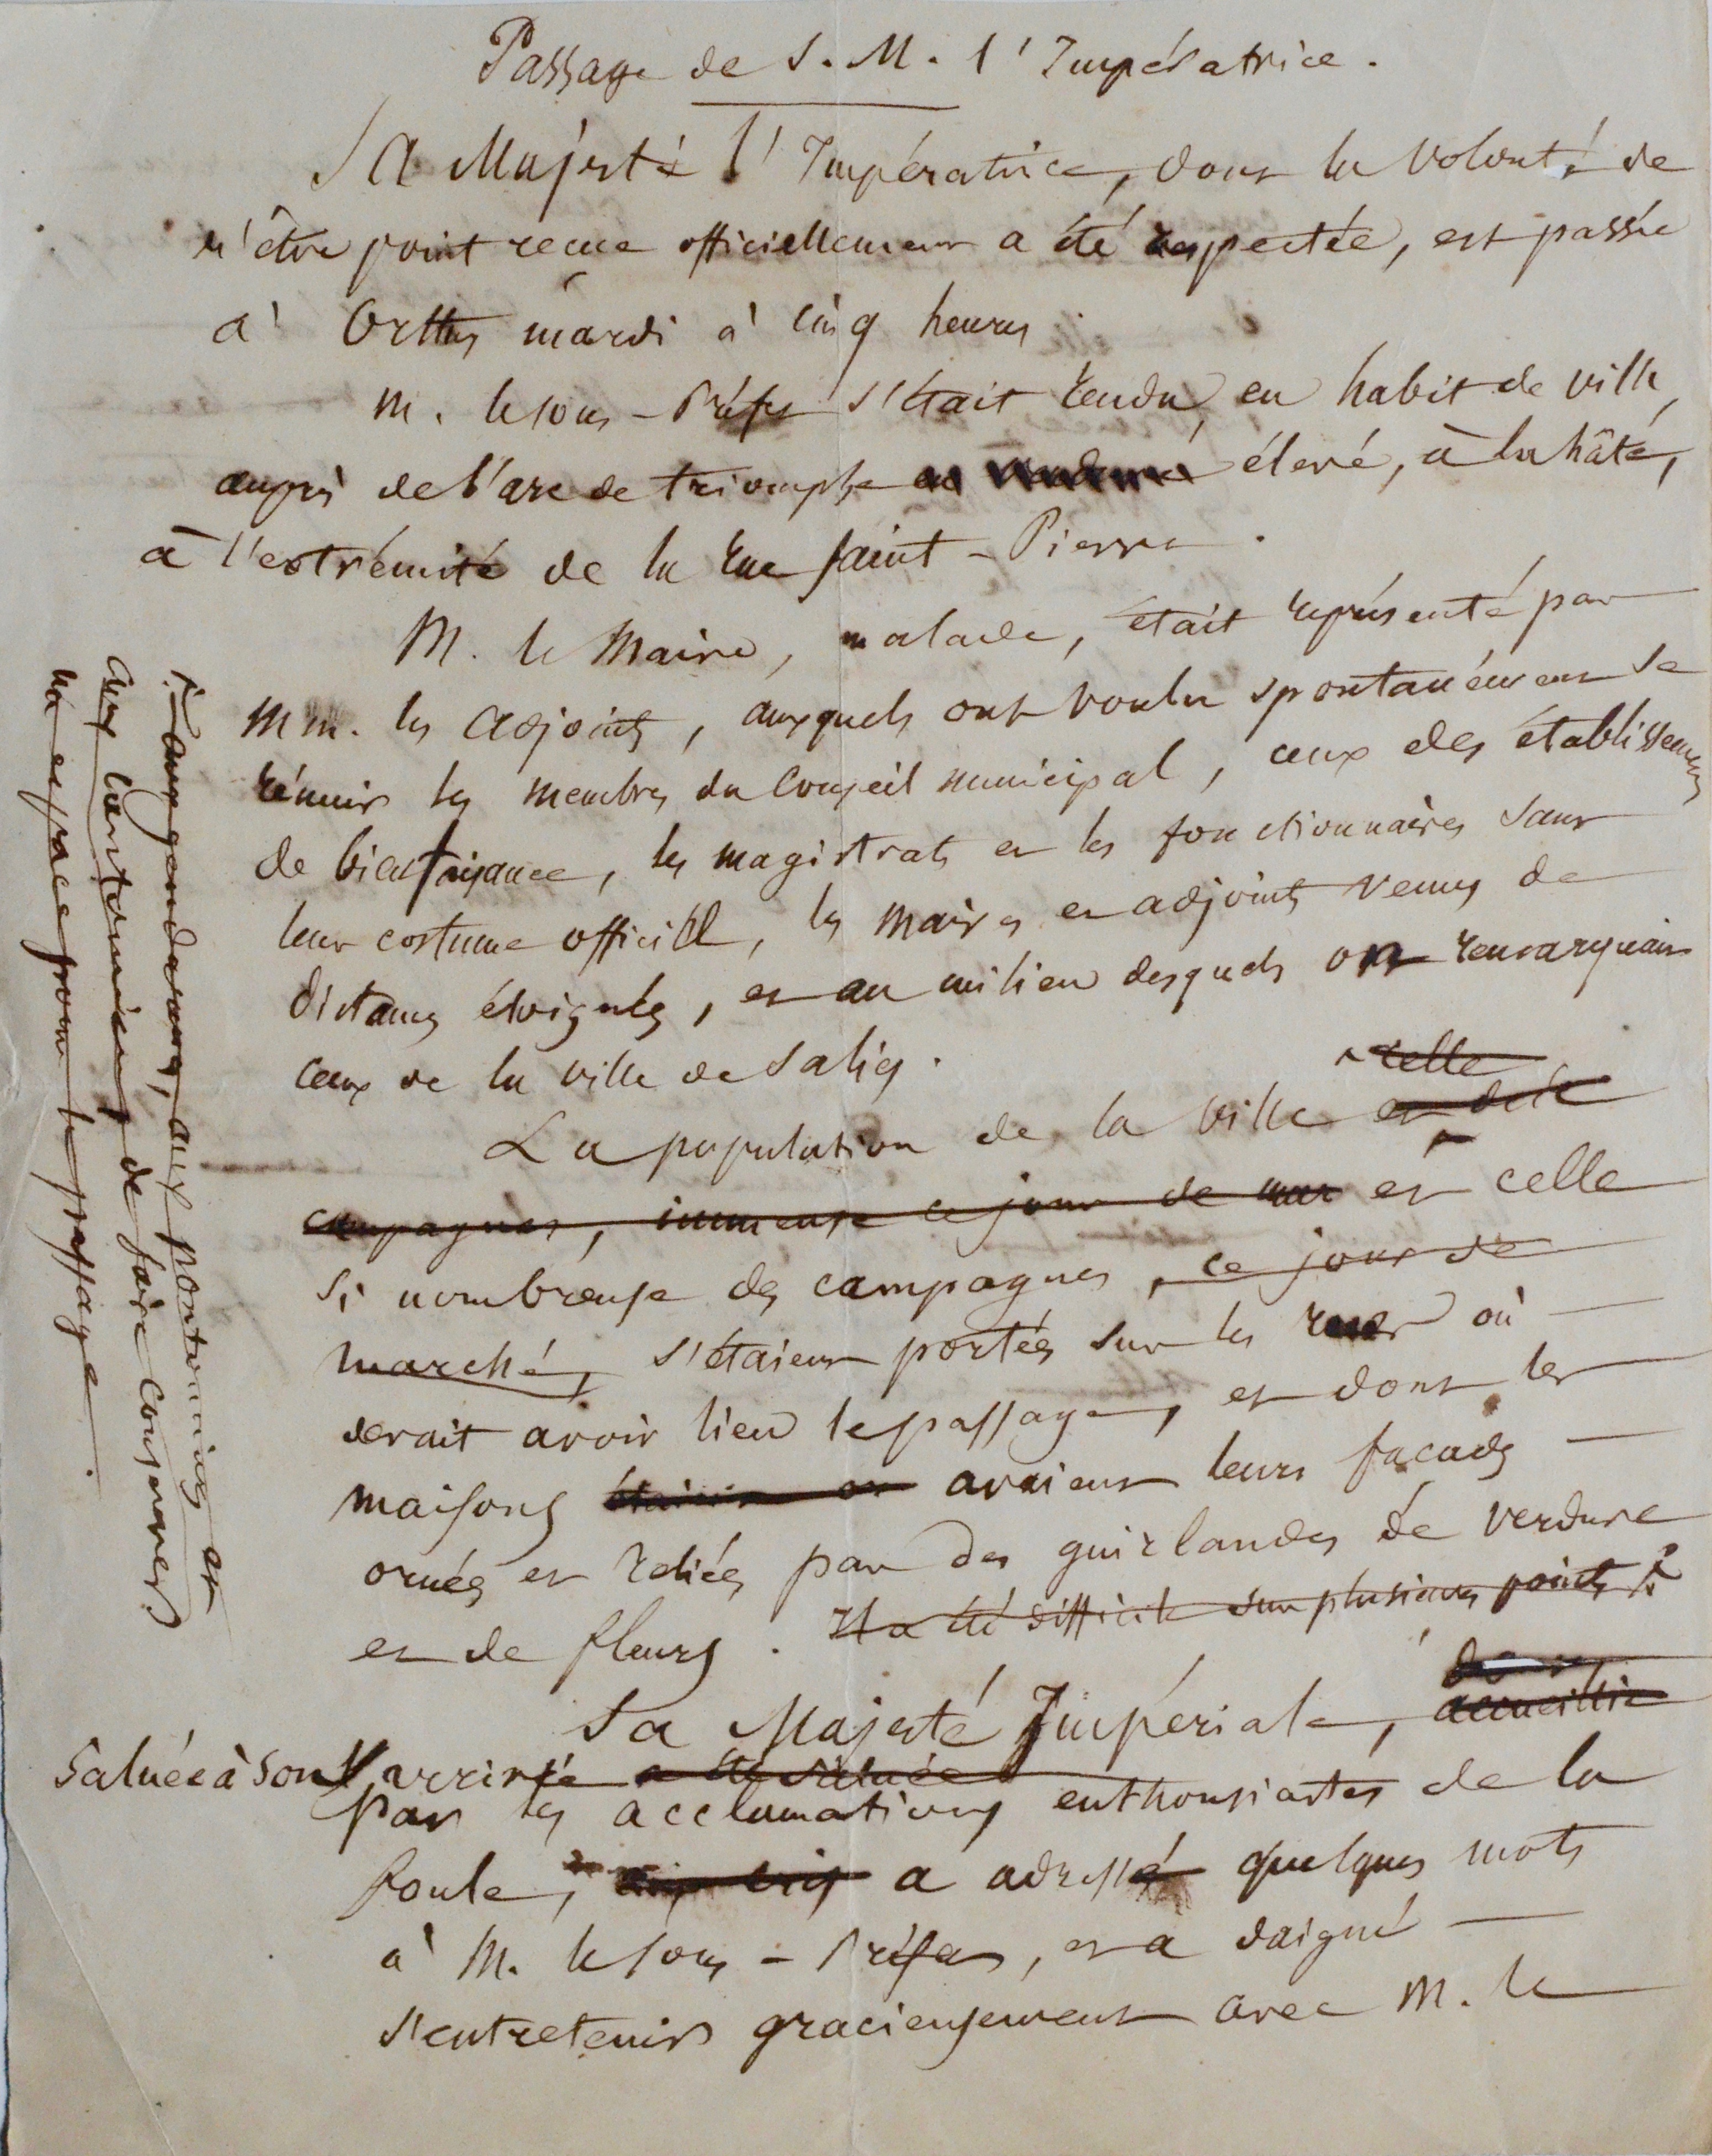 Passage de S. M. l'Impératrice.
Sa Majesté l'Impératrice, dont la volonté de
n'être point reçue officiellement a été respectée, est passée
à Orthez mardi à cinq heures.
M. le sous-Préfet s'était rendu, en habit de ville,
auprès de l'arc de triomphe élevé, à la hâte,
à l'extrémité de la rue Saint-Pierre.
M. le Maire, malade, était représenté par
MM. les adjoints, auxquels ont voulu spontanément se
réunir les membres du Conseil municipal, ceux des établissements
de bienfaisance, les magistrats et les fonctionnaires sans
leur costume officiel, les maires et adjoints venus de
distances éloignées, et au milieu desquels on remarquait
ceux de la ville de Salies.
celle
La population de la ville et de le
campagnes, immense ce jour de mar et celle
si nombreuse des campagnes, ce jour de
marché, s'étaient portées sur les rues où
devait avoir lieu le passage, et dont les
maisons étaient avaient leurs façades
ornées et reliées par des guirlandes de verdure
et de fleurs. Il a été difficile sur plusieurs points
Sa Majesté Impériale, accueillie
Saluée à son arrivée a été saluée
par les acclamations enthousiastes de la
foule, a adressé quelques mots
à M. le sous-Préfet, et a daigné
s'entretenir gracieusement avec M. le
aux gendarmes, aux pontonniers et
aux cantonniers de faire conserver
un espace pour le passage.